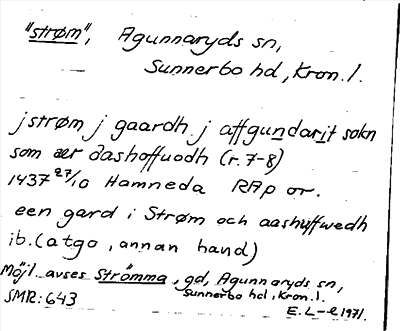 "strøm", Agunnaryds sn,
Sunnerbo hd, Kron. l.
j strøm j gaardh j affgundarit sokn
som ær dashoffuodh (r. 7-8)
1437 27/10 Hamneda RAp or.
een gard i Strøm och aashuffwedh
ib. (atgo, annan hand)
Möjl. avses Strömma, gd, Agunnaryds sn,
Sunnerbo hd, Kron. l.
SMR: 643
E. L-e 1971.